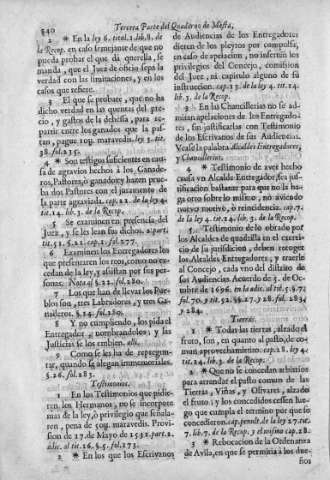 340 Tercera Parte del Quaderno de Mesta,
2 * En la ley 6. titol. 1. lib. 8. de
la Recop. en caso semejante de que no
pueda probar el que da querella, se
manda, que el Juez de oficio sepa la
verdad con testimonios, y en los
casos que refiere.
3 El que se probare, que no ha
dicho verdad en las quentas del pre-
cio, y gastos de la dehesa, para re-
partir entre los ganados que la pas-
tan, pague 109. maravedis. ley 3. tit.
38. fol. 235.
4 * Son testigos suficientes en cau-
sa de agravios hechos à los Ganade-
ros, Pastores, ò ganado, y hazen prue-
ba dos Pastores con el juramento de
la parte agraviada. cap. 22. de la ley 4.
tit. 14. lib. 3. de la Recop.
5 Se examinen en presencia del
Juez, y se les lean sus dichos. 2. part.
tit. 52. §. 21. cap. 2. fol. 277.
6 Examinen los Entregadores los
que presentaren los reos, como no ex-
cedan de la ley, y assistan por sus per-
sonas. Nota al §. 22. fol. 280.
7 Los que han de llevar los Pue-
blos son, tres Labradores, y tres Ga-
naderos. §. 24. fol. 280.
8 Y no cumpliendo, los pida el
Entregador, nombrandolos; y las
Justicias se los embien. alli.
9 Como se les ha de repregun-
tar, quando se alegan immemoriales.
§. 26. fol. 283.
Testimonios.
1 En los Testimonios que pidie-
ren los Hermanos, no se incorpore
mas de la ley, ò privilegio que señala-
ren, pena de 509. maravedis. Provi-
sion de 17. de Mayo de 1532. part. 2.
adic. al tit. 26. §. 5. fol.
2 * En los que los Escrivanos
de Audiencias de los Entregadores
dieren de los pleytos por compulsa,
en caso de apelacion, no inserten los
privilegios del Concejo, comision
del Juez, ni capitulo alguno de su
instruccion. cap. 23. de la ley 4. tit. 14.
lib. 3. de la Recop.
3 * En las Chancillerias no se ad-
mitan apelaciones de los Entregado-
res, sin justificarlas con Testimonio
de los Escrivanos de sus Audiencias.
Vease la palabra Alcaldes Entregadores,
y Chancillerias.
4 * Testimonio de aver hecho
causa vn Alcalde Entregador, sea jus-
tificacion bastante para que no la ha-
ga otro sobre lo mismo, no aviendo
nuevo rompido, ò reincidencia. cap. 7.
de la ley 4. tit. 14. lib. 3. de la Recop.
5. Testimonio de lo obrado por
los Alcaldes de quadrilla en el exerci-
cio de la jurisdicion, deben recoger
los Alcaldes Entregadores, y traerle
al Concejo, cada vno del distrito de
sus Audiencias. Acuerdo de 5. de Oc-
tubre de 1696. en la adic. al tit. 5. §. 7.
fol. 70. y tit. 52. §§. 27. y 28. fol. 283.
y 284.
Tierras.
1 * Todas las tierras, alzado el
fruto, son, en quanto al pasto, de co-
mun aprovechamiento. cap. 28. ley 4.
tit. 14. lib. 3. de la Recop.
2 * Que no se concedan arbitrios
para arrendar el pasto comun de las
Tierras, Viñas, y Olivares, alzado
el fruto: y los concedidos cessen lue-
go que cumpla el termino por que se
concedieron. cap. penult. de la ley 27. tit.
7. lib. 7. de la Recop. y el mismo cap. 28.
3 * Rebocacion de la Ordenanza
de Avila, en que se permitia à los due-
ños